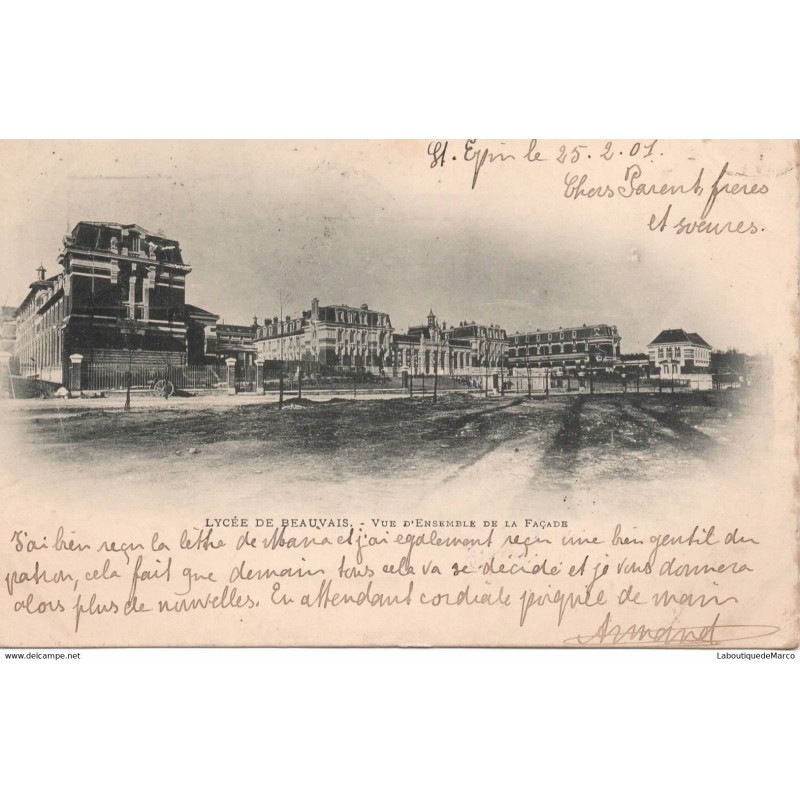 St. Epin le 25.2.01.
Chers Parents frères
et soeures.
LYCÉE DE BEAUVAIS. - VUE D'ENSEMBLE DE LA FAÇADE
J'ai bien reçu la lèttre de Maria et j'ai également reçu une bien gentil du
patron, cela fait que demain tous cela va se décidé et je vous donnerai
alors plus de nouvelles. En attendant cordiale poignée de main
Armand
www.delcampe.net
LaboutiquedeMarco